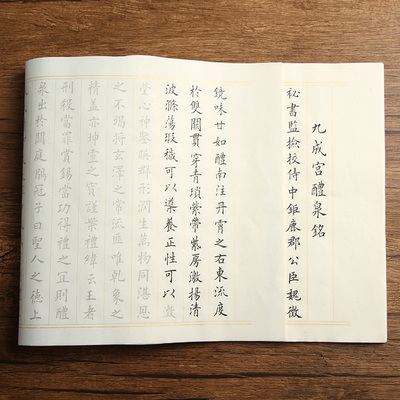 九成宫醴泉銘
秘書監撿挍侍中鉅鹿郡公臣魏徵
鏡味甘如醴南注丹霄之右東流度
於雙闕貫穿青瑣縈帶紫房激揚清
波滌蕩瑕穢可以導養正性可以澂
瑩心神鑒暎群形潤生萬物同湛恩
之不竭將玄澤之常流匪唯乾象之
精盖亦坤靈之寶謹案禮緯云王者
刑殺當罪賞錫當功得禮之宜則醴
泉出於闕庭鶡冠子曰聖人之德上